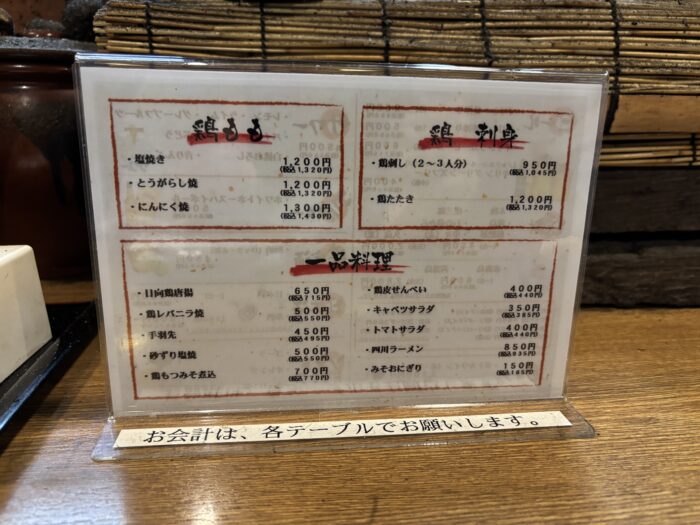 鶏もも
・塩焼き 1,200円
(税込1,320円)
・とうがらし焼 1,200円
(税込1,320円)
・にんにく焼 1,300円
(税込1,430円)
鶏 刺身
・鶏刺し（2〜3人分） 950円
(税込1,045円)
・鶏たたき 1,200円
(税込1,320円)
一品料理
・日向鶏唐揚 650円
(税込715円)
・鶏レバニラ焼 500円
(税込550円)
・手羽先 450円
(税込495円)
・砂ずり塩焼 500円
(税込550円)
・鶏もつみそ煮込 700円
(税込770円)
・鶏皮せんべい 400円
(税込440円)
・キャベツサラダ 350円
(税込385円)
・トマトサラダ 400円
(税込440円)
・四川ラーメン 850円
(税込935円)
・みそおにぎり 150円
(税込165円)
お会計は、各テーブルでお願いします。